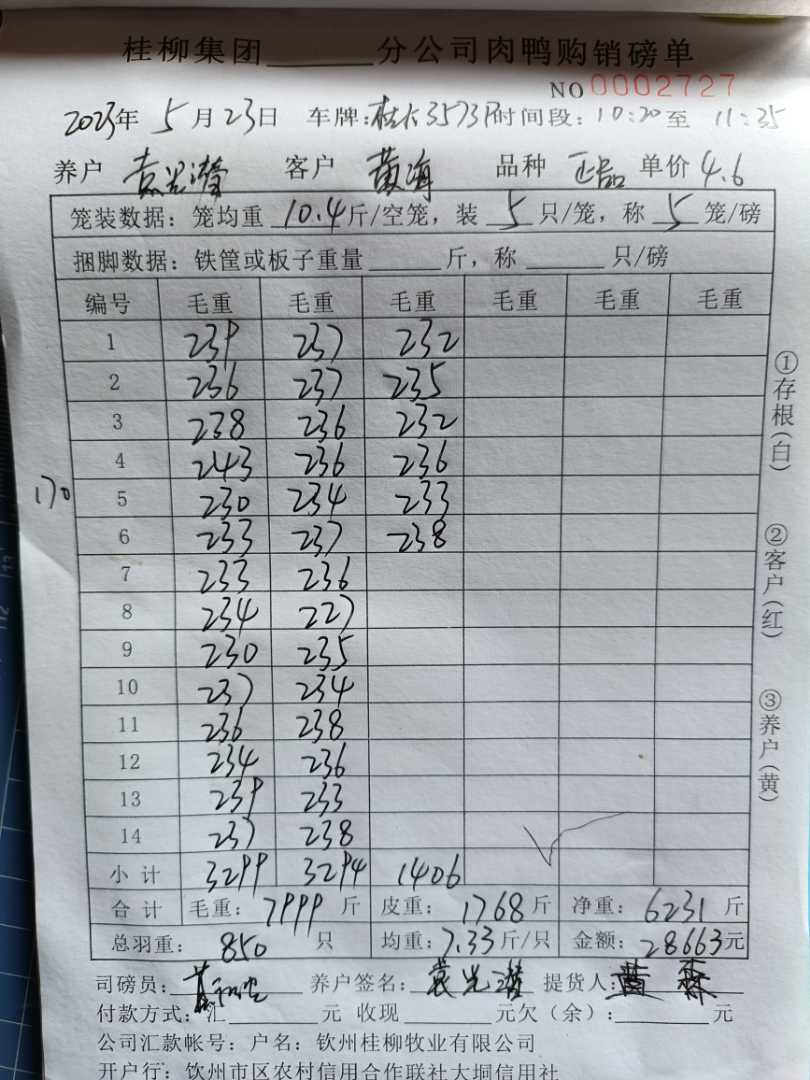 桂柳集团______分公司肉鸭购销磅单
NO 0002727
2023年 5月23日 车牌: 时间段:10:20至 11:35
养户 客户 黄海 品种 正品 单价 4.6
笼装数据:笼均重 10.4斤/空笼,装 5 只/笼,称 5 笼/磅
捆脚数据:铁筐或板子重量______斤,称______只/磅
编号 毛重 毛重 毛重 毛重 毛重 毛重
1 239 237 232
2 236 237 235
3 238 236 232
4 243 236 236
170
5 230 234 233
6 233 237 238
7 233 236
8 234 227
9 230 235
10 237 234
11 236 238
12 234 236
13 239 233
14 237 238
小计 3299 3294 1406
合计 毛重:7999斤 皮重:1768斤 净重:6231斤
总羽重:850 只 均重:7.33斤/只 金额:28663元
司磅员: 养户签名: 提货人:
付款方式:汇______元 收现______元欠(余):______元
公司汇款帐号:户名:钦州桂柳牧业有限公司
开户行:钦州市区农村信用合作联社大垌信用社
①存根(白)
②客户(红)
③养户(黄)